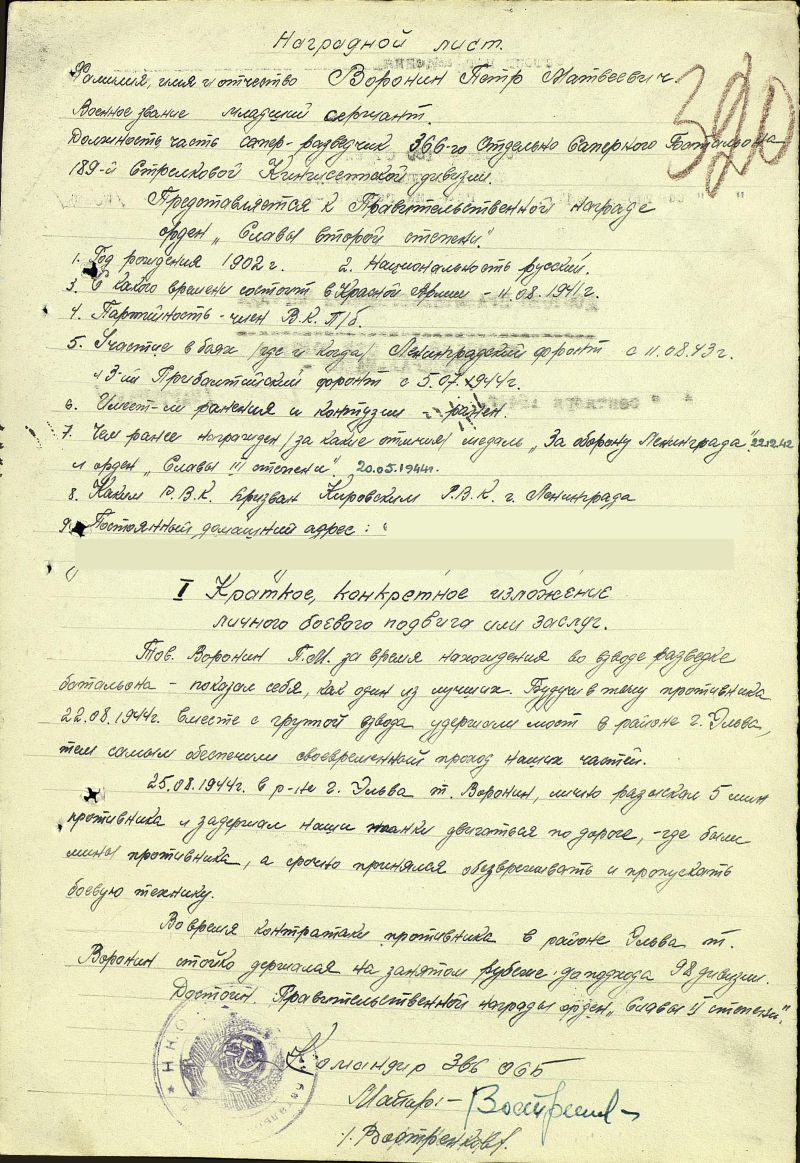 Наградной лист.
320
Фамилия, имя и отчество Воронин Петр Матвеевич.
Военное звание младший сержант.
Должность часть сапер-разведчик 366-го Отдельно Саперного Батальона
189-й Стрелковой Кингисепской дивизии.
Представляется к Правительственной награде
орден „Славы второй степени".
1. Год рождения 1902 г. 2. Национальность русский.
3. С какого времени состоит в Красной Армии - 11.08.1941 г.
4. Партийность - член В.К.П/б.
5. Участие в боях /где и когда/ Ленинградский фронт с 11.08.43 г.
и 3-ий Прибалтийский фронт с 5.07.1944 г.
6. Имеет-ли ранения и контузии - ранен.
7. Чем ранее награжден /за какие отличия/ медаль „За оборону Ленинграда". 22.12.42
и орден „Славы III степени". 20.05.1944 г.
8. Каким Р.В.К. призван Кировским Р.В.К. г. Ленинграда
9. Постоянный домашний адрес:
I Краткое, конкретное изложение
личного боевого подвига или заслуг.
Тов. Воронин П.М. за время нахождения во взводе разведке
батальона - показал себя, как один из лучших. Будучи в тылу противника
22.08.1944 г. вместе с группой взвода удержали мост в районе г. Эльва,
тем самым обеспечили своевременный проход наших частей.
25.08.1944 г. в р-не г. Эльва т. Воронин, лично разыскал 5 мин
противника и задержал наши танки двигаться по дороге, - где были
мины противника, а срочно принялся обезвреживать и пропускать
боевую технику.
Во время контратаки противника в районе Эльва т.
Воронин стойко держался на занятом рубеже до подхода 98 дивизии.
Достоин Правительственной награды орден „Славы II степени".
Командир 366 ОСБ
Майор: -
/. Востренков/.